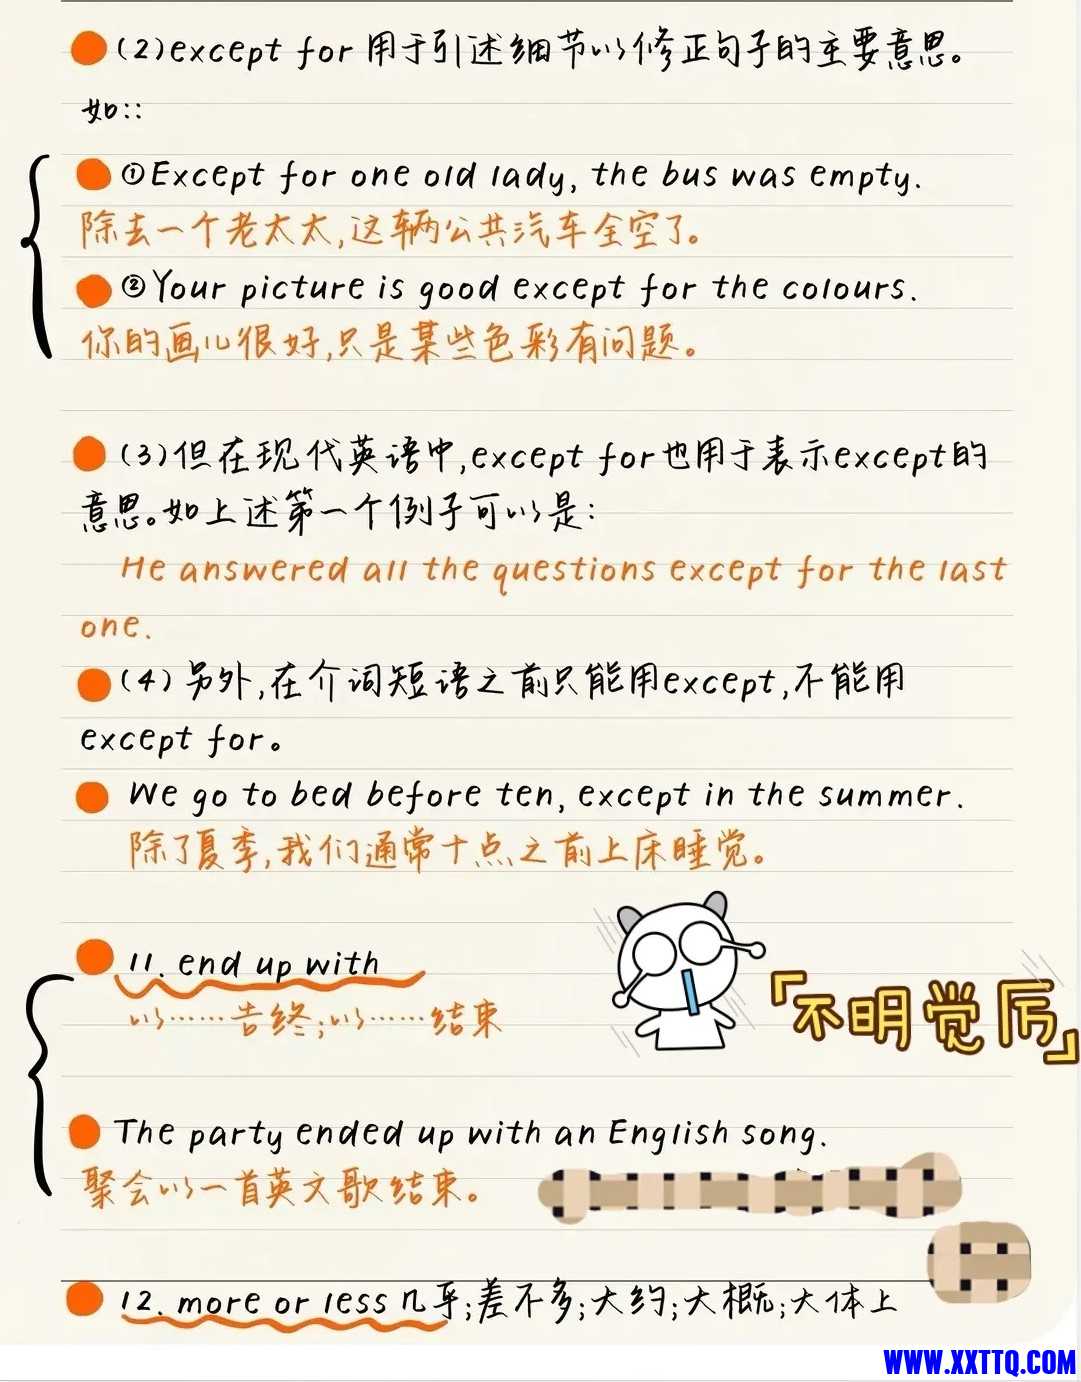 (2)except for 用于引述细节以修正句子的主要意思。
如::
①Except for one old lady, the bus was empty.
除去一个老太太,这辆公共汽车全空了。
②Your picture is good except for the colours.
你的画儿很好,只是某些色彩有问题。
(3)但在现代英语中,except for也用于表示except的
意思。如上述第一个例子可以是:
He answered all the questions except for the last
one.
(4)另外,在介词短语之前只能用except,不能用
except for。
We go to bed before ten, except in the summer.
除了夏季,我们通常十点之前上床睡觉。
11. end up with
以……告终;以……结束
「不明觉厉」
The party ended up with an English song.
聚会以一首英文歌结束。
12. more or less 几乎;差不多;大约;大概;大体上
WWW.XXTTQ.COM